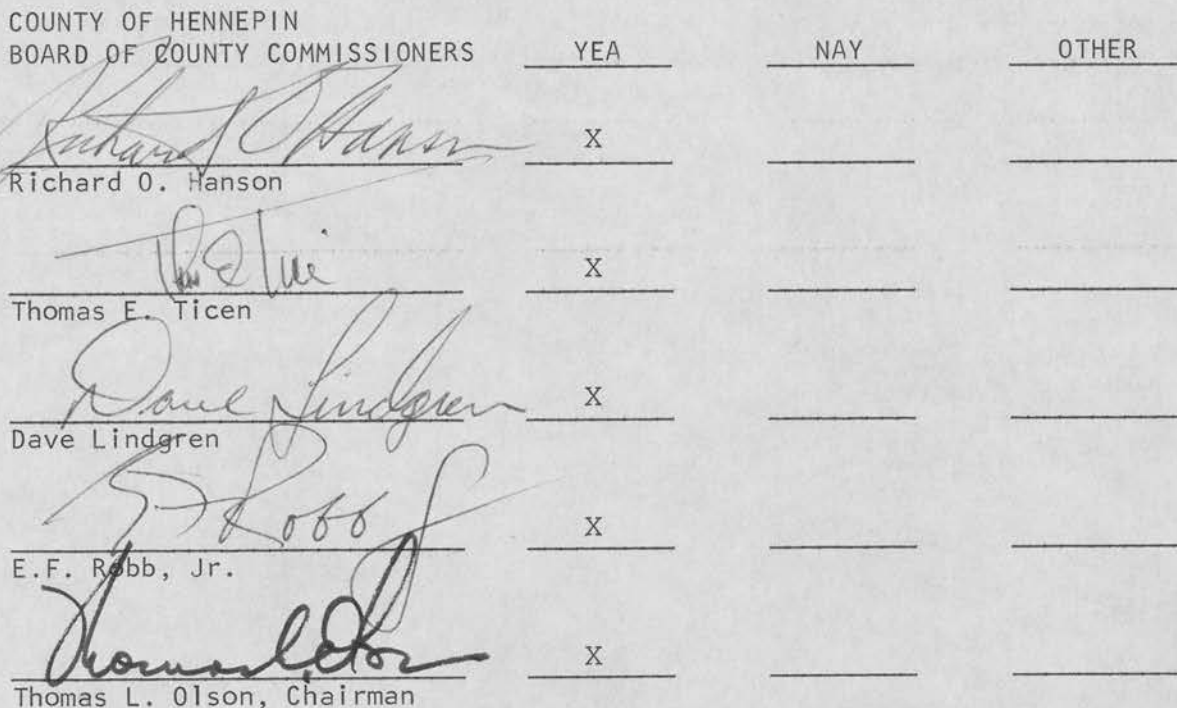 COUNTY OF HENNEPIN
BOARD OF COUNTY COMMISSIONERS YEA NAY OTHER
Richard O Hanson X
Richard O. Hanson
X
Thomas E. Ticen
Dave Lindgren X
Dave Lindgren
E F Robb Jr X
E.F. Robb, Jr.
Thomas L. Olson X
Thomas L. Olson, Chairman